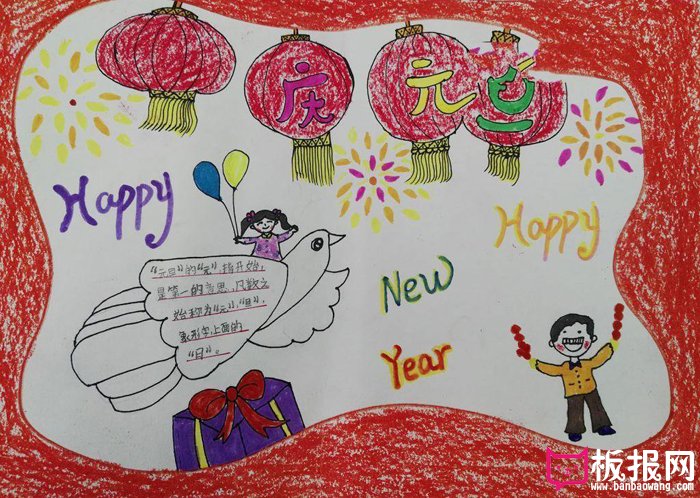 庆元旦
Happy
Happy
New
Year
"元旦"的"元",指开始,
是第一的意思,凡数之
始称为"元","旦",
象形字,上面的
"日"。
板报网
www.banbaowang.com